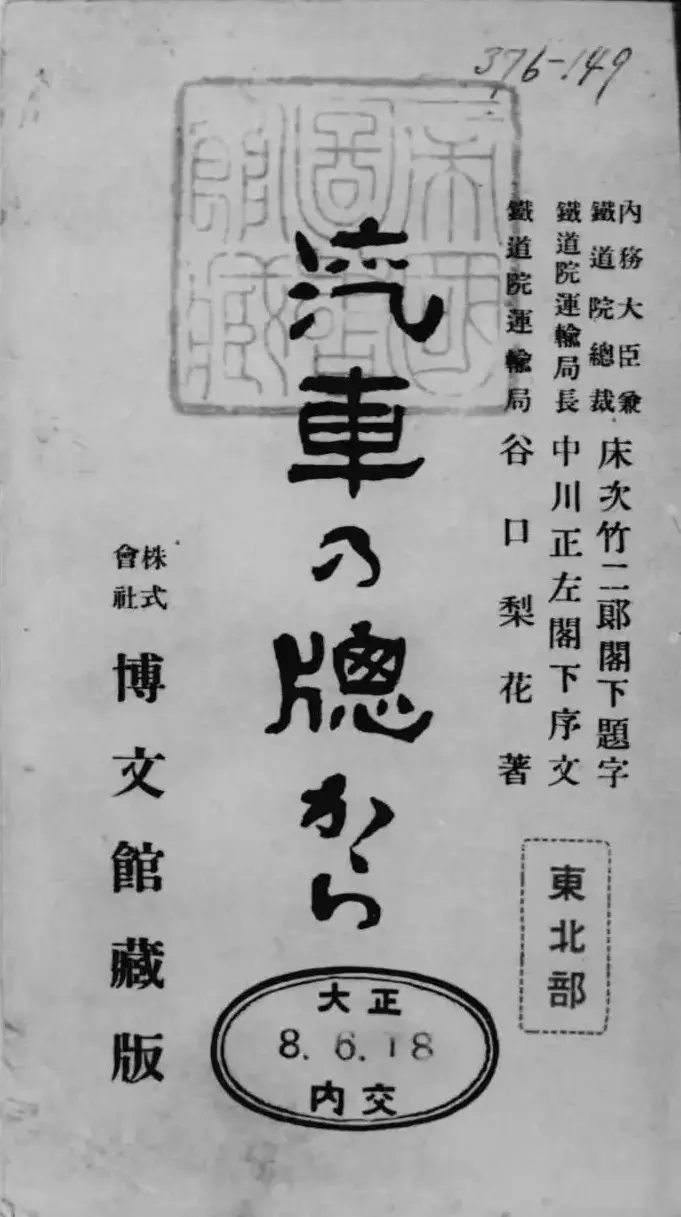 376-149
帝國
圖書
館藏
内務大臣兼
鐵道院總裁
床次竹二郎閣下題字
鐵道院運輸局長 中川正左閣下序文
鐵道院運輸局 谷口梨花著
東北部
汽車の牕から
株式
會社
博文館藏版
大正
8.6.18
内交